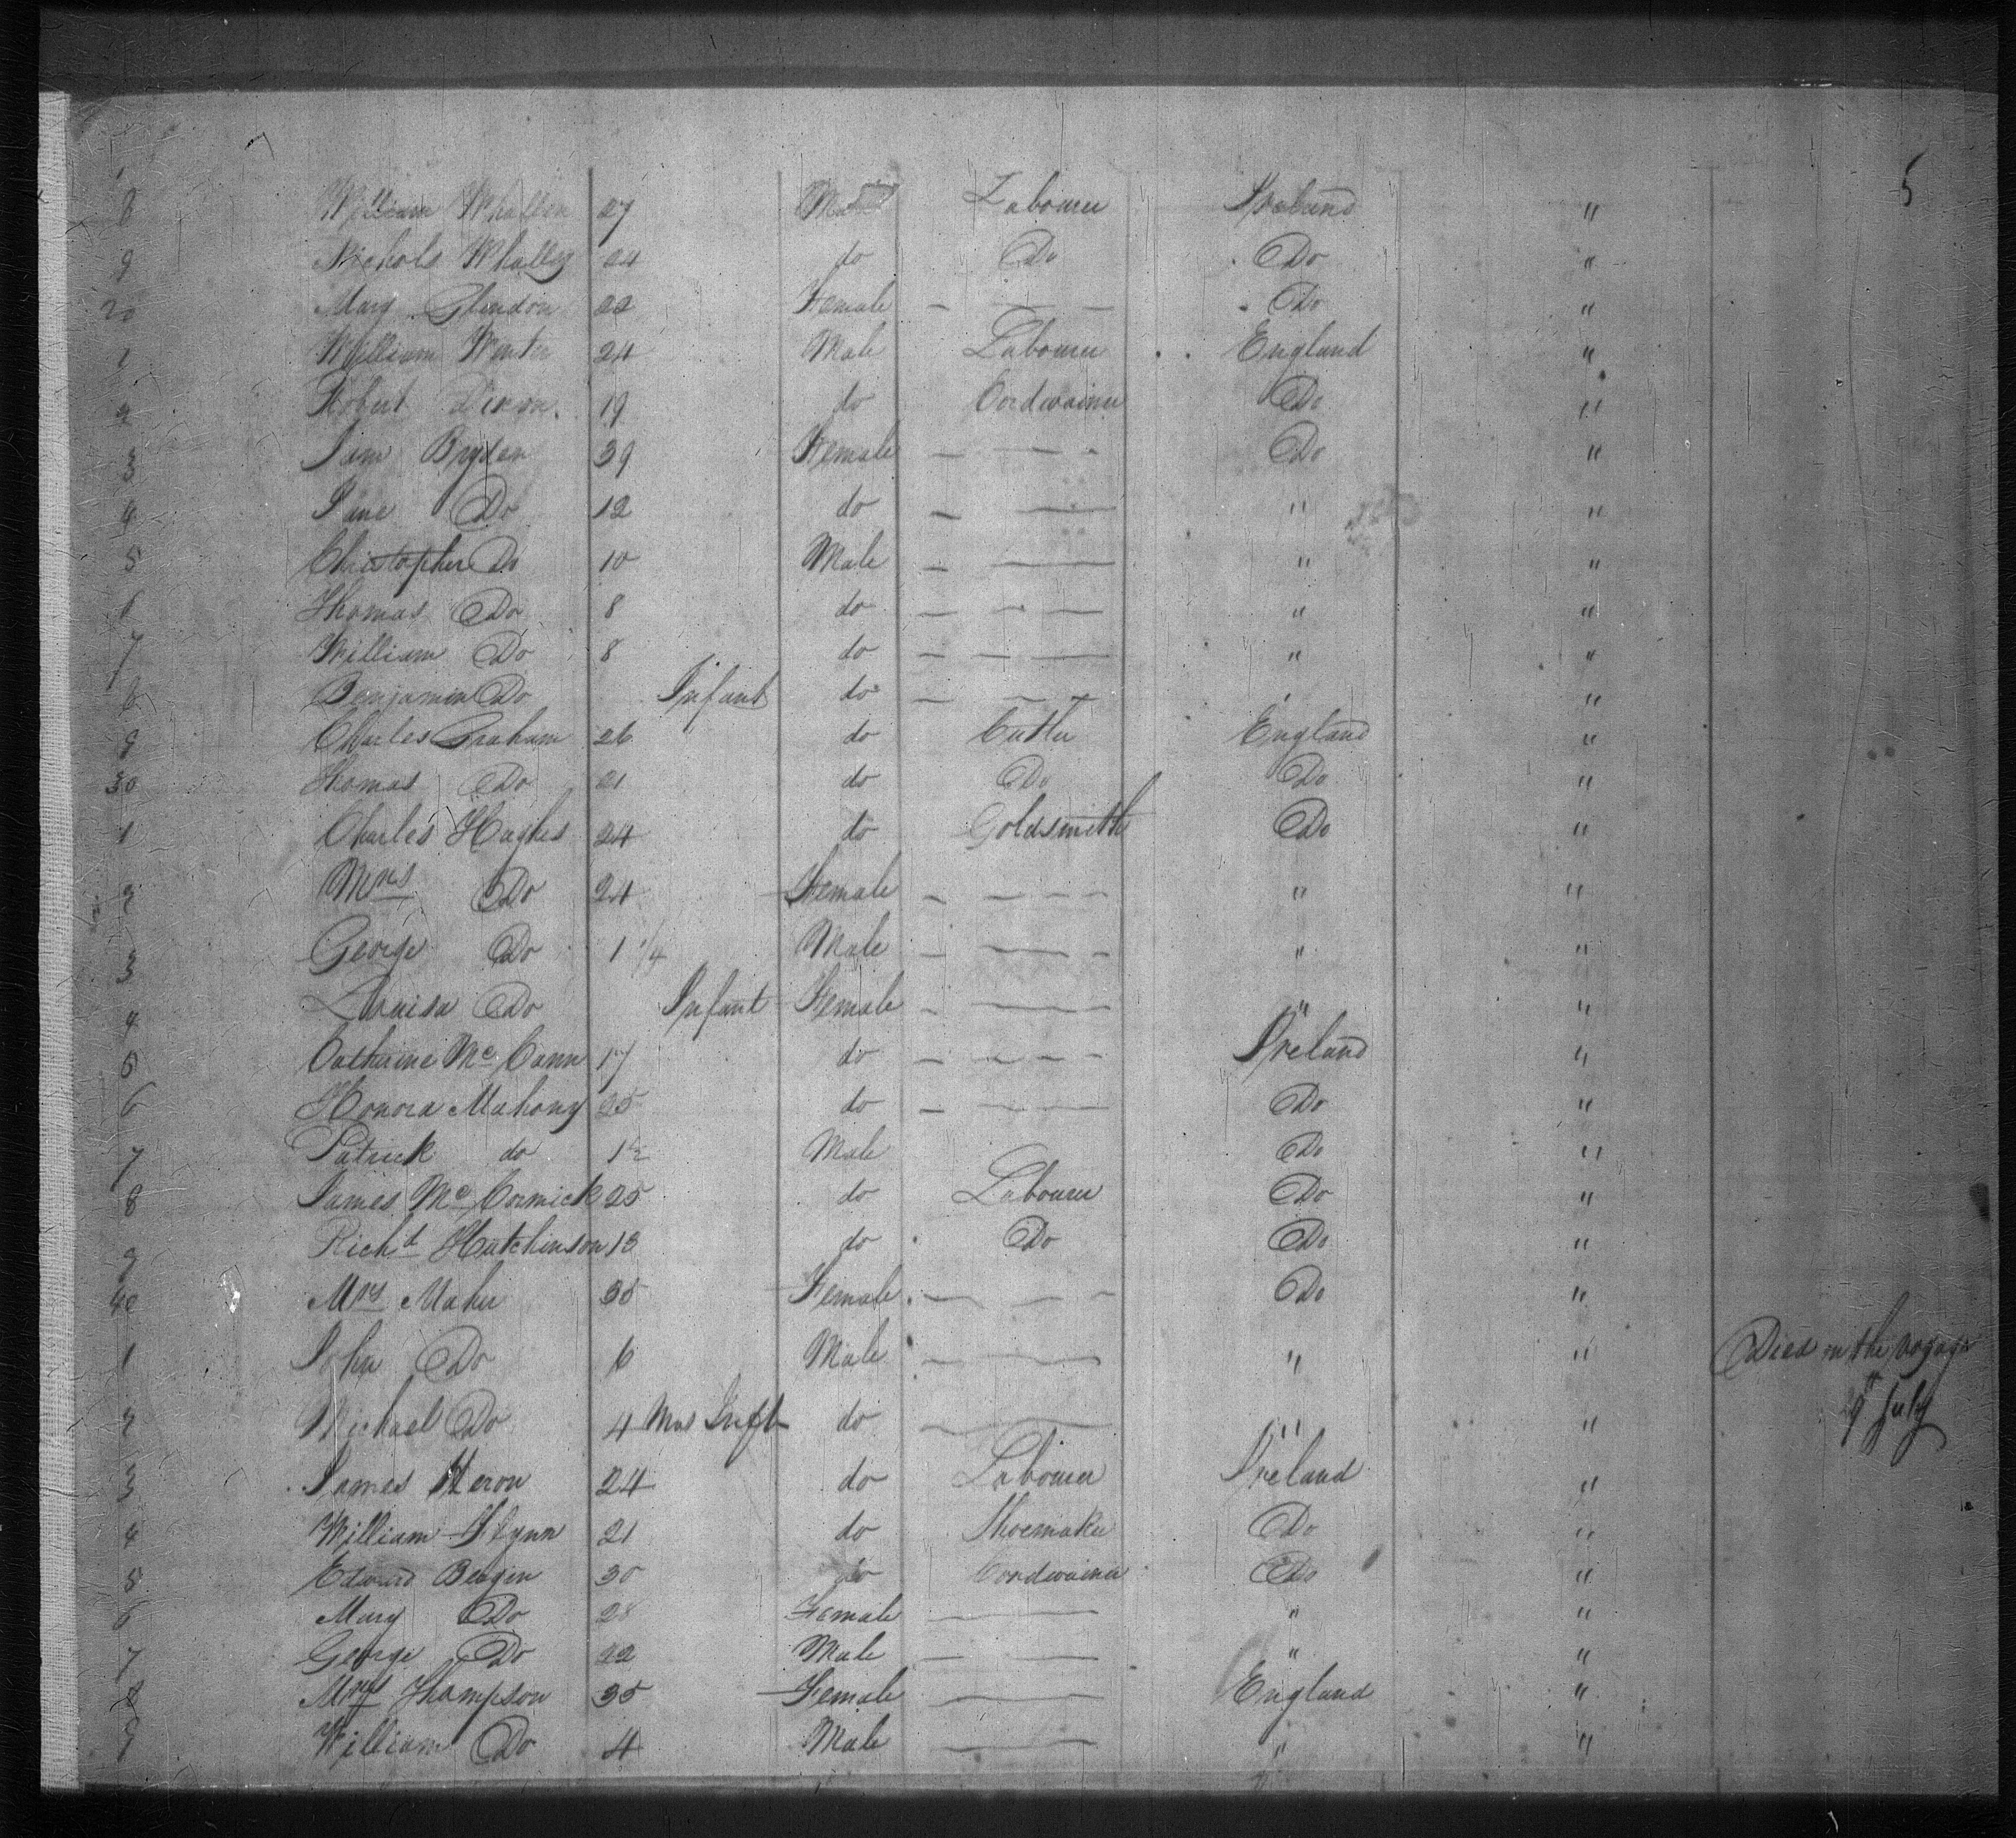 5
8 William Whallen 27 Male Labourer Ireland "
9 Nichols Whalley 24 do Do Do "
20 Mary Glendon 22 Female — — — Do "
1 William Wenter 24 Male Labourer England "
2 Robert Dixon 19 do Cordwainer Do "
3 Jane Bryden 39 Female — — — Do "
4 Jane Do 12 do — — " "
5 Christopher Do 10 Male — — — " "
6 Thomas Do 8 do — — — " "
7 William Do 8 do — — — " "
8 Benjamin Do Infant do — — — "
9 Charles Graham 26 do Cutler England "
30 Thomas Do 21 do Do Do "
1 Charles Hughes 24 do Goldsmith Do "
2 Mrs Do 24 Female — — — " "
3 George Do 1 1/4 Male — — — " "
4 Louisa Do Infant Female — — " "
5 Catherine Mc Cann 17 do — — — Ireland "
6 Honora Mahony 25 do — — — Do "
7 Patrick do 1½ Male Do "
8 James Mc Cormick 25 do Labourer Do "
9 Richd Hutchinson 18 do Do Do "
40 Mrs Maher 35 Female — — — Do "
1 John Do 6 Male — — " " Died on the voyage
2 Michael Do 4 Mos Inft do — — " " 9th July
3 James Heron 24 do Labourer Ireland "
4 William Flynn 21 do Shoemaker Do "
5 Edward Bergin 30 do Cordwainer Do "
6 Mary Do 28 Female — " "
7 George Do 22 Male — — " "
8 Mrs Thompson 35 Female — England "
9 William Do 4 Male — " "